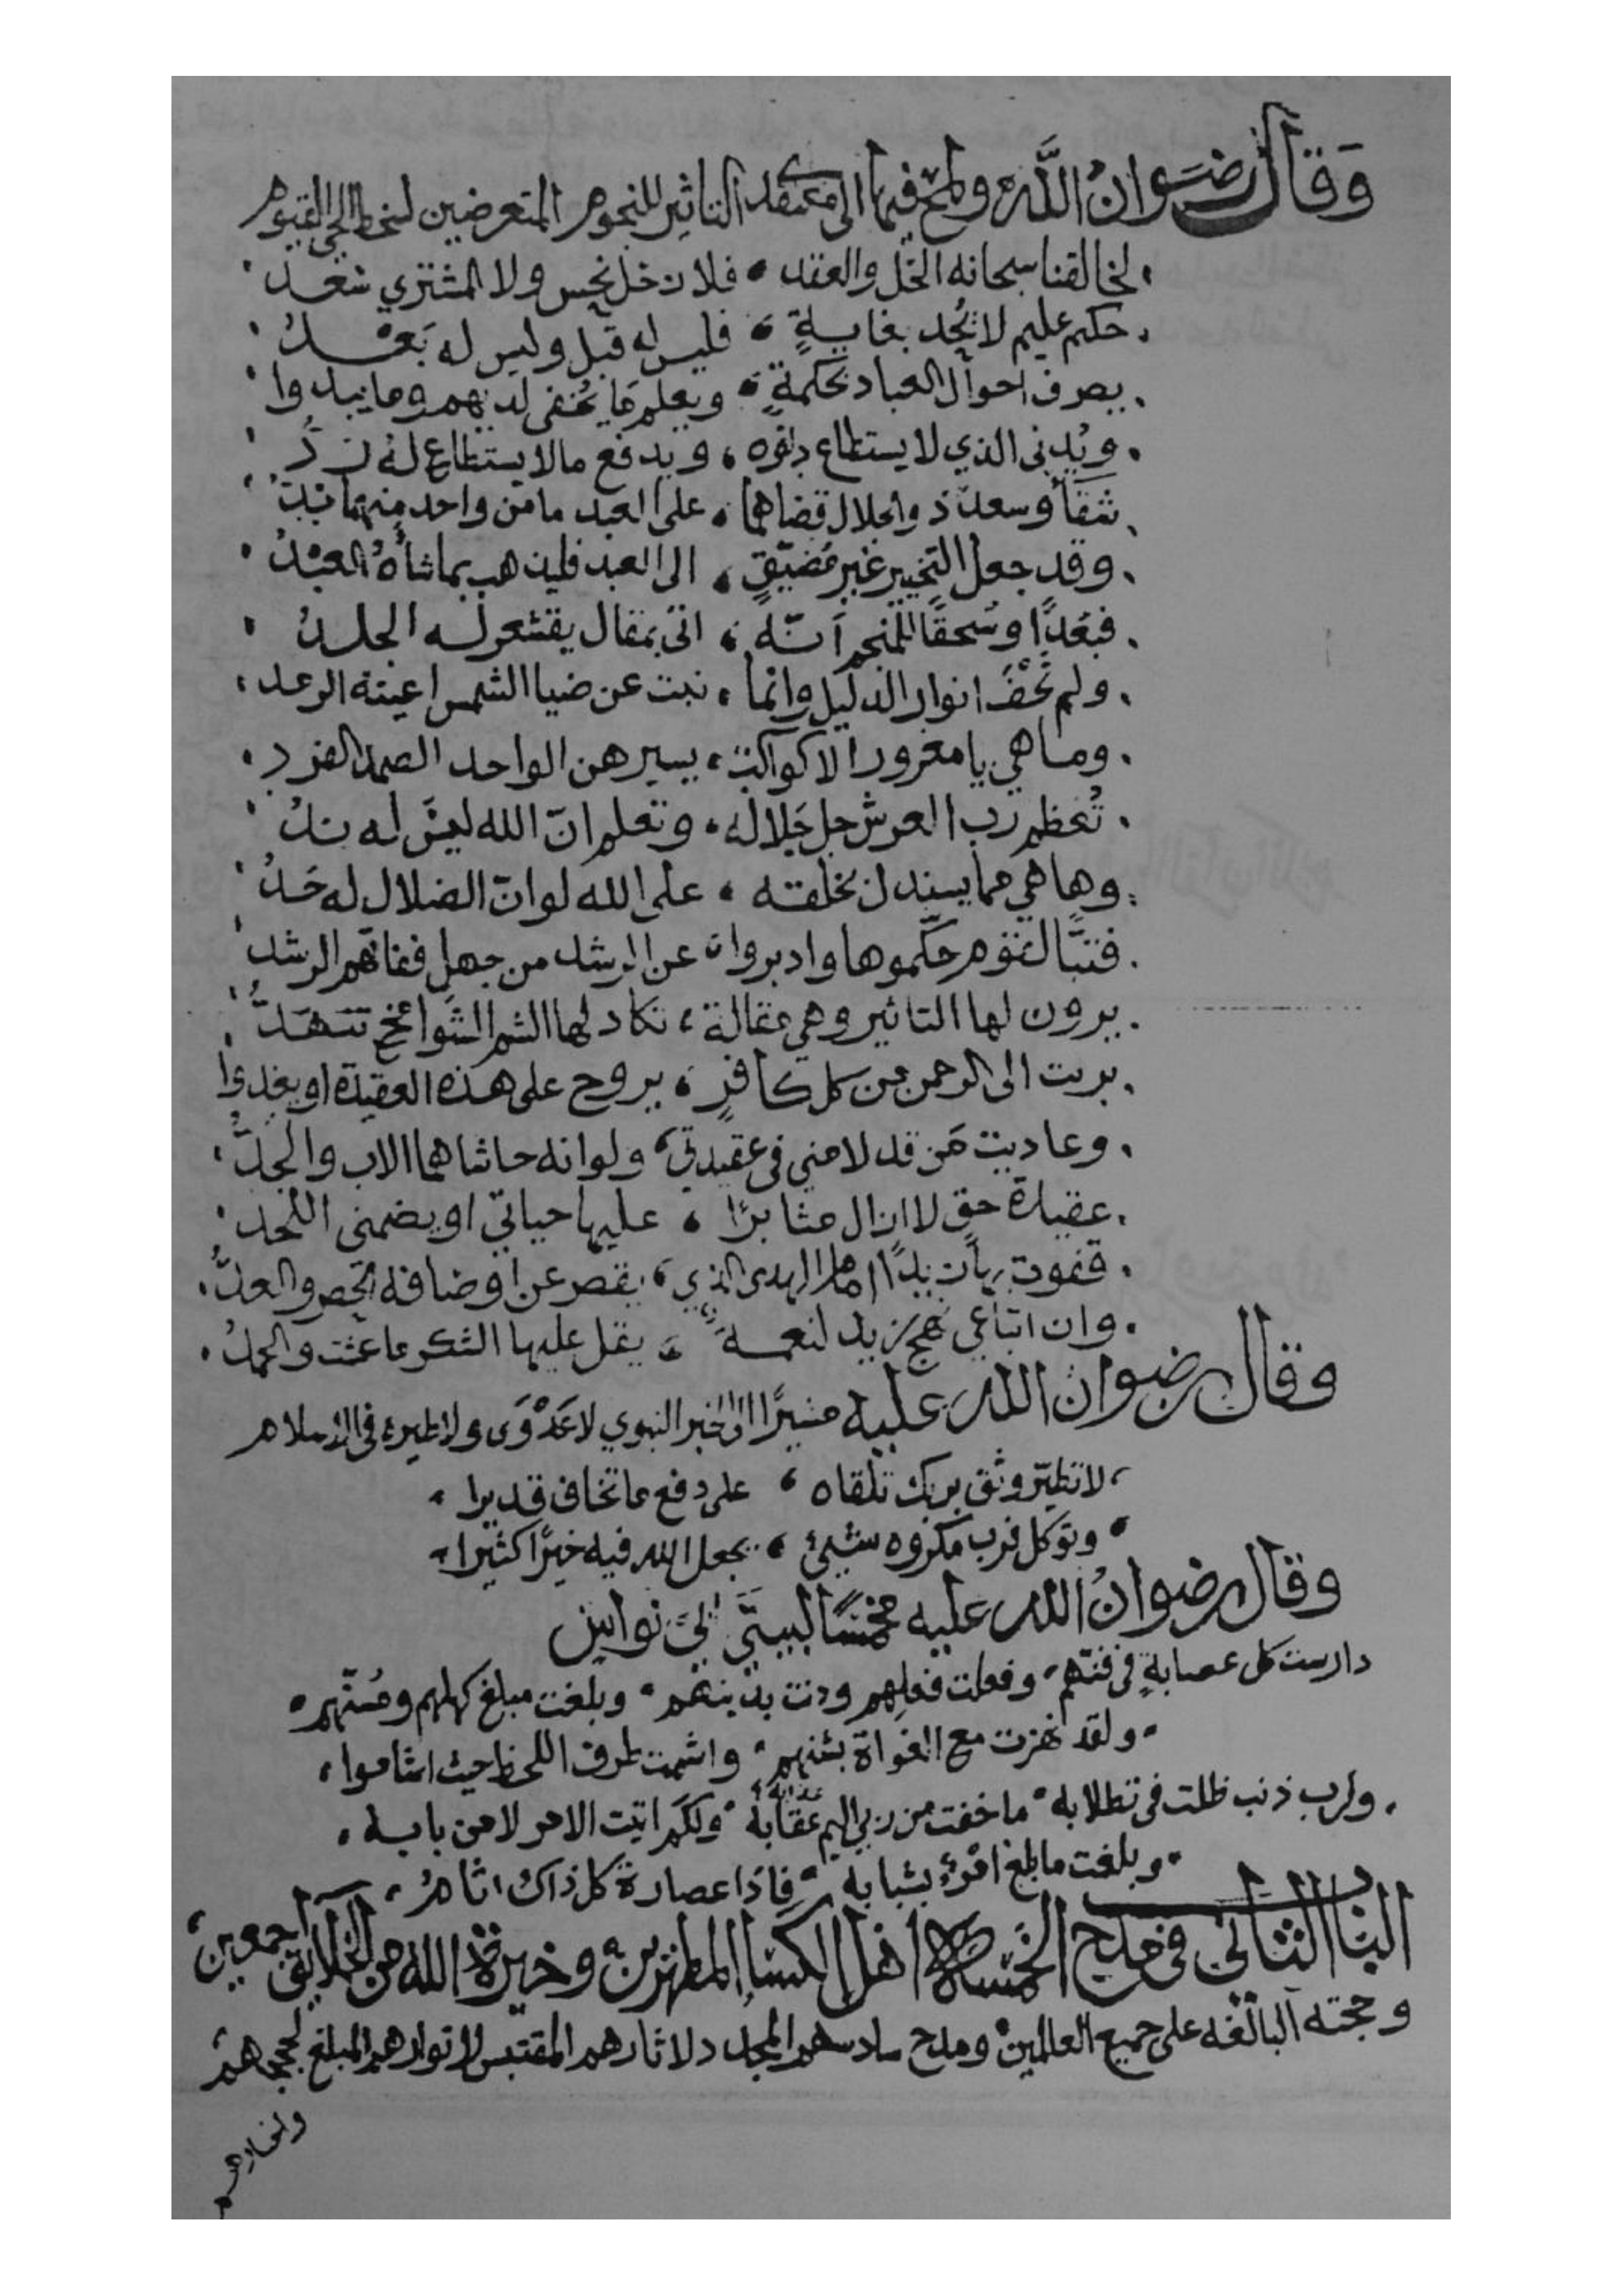 وَقَالَ رضَوانُ اللَّه ولمح فيها الى معتقد التاثير للنجوم المتعرضين لسخط الحي القيوم
لخالقنا سبحانه الحَل والعقد ، فلا زحل نحس ولا المشتري سَعد
حكيم عليم لا يُحد بغايةٍ ، فليس له قبل وليس له بَعْدُ
يصرف احوال العباد بحكمةٍ ، ويعلم مَا يُخفى لديهم وما يبدوا
ويُدنى الذي لا يستطاع دنوه ، ويدفع مالا يستطاع لهُ رَدُّ
شقاً وسعدٌ ذو الجلال قضاهما ، على العبد ما من واحد منهما بُدّ
وقد جعل التخيير غير مُضيّقٍ ، الى العبد فليذهب بما شأهُ العبْدُ
فبُعدًا وسُحقًا للمنجم اَنّه ، اتى بمقال يقشعر له الجلدُ
ولم تُخْفَ انوار الدليل وانما ، نبت عن ضيا الشمس اعينه الرمد
وما هي يا مغرور الا كواكبٌ ، يسيرهن الواحد الصمد الفرد
تُعظم رب العرش جل جَلاله ، وتعلم انّ الله ليسَ له ندُ
وها هي مما يستدل بخلقه ، على الله لو انّ الضلال له حَدُ
فتبًّا لقوم حكّموها وادبروا ، عن الرشد من جهلٍ ففاتهم الرشد
يرون لها التاثير وهي مقالة ، تكاد لها الشم الشوامخ تنهَدُّ
بريت الى الرحمن من كل كافرٍ ، يروح على هذه العقيدة او يغدوا
وعاديت مَن قد لامني في عقيدتي ، ولو انه حاشاهما الاب والجَدُّ
عقيدة حق لا ازال مثابرًا ، عليها حياتي او يضمني اللحد
قفوت بها زيدًا امام الهدى الذي ، يقصر عن اوصافه الحصر والعدُّ
وان اتباعي نهج زيد لنعمةٌ ، يقل عليها الشكر ما عشت والحمدُ
وقال رضوان الله عليه مشيرًا الى الخبر النبوي لا عَدْوَى ولا طيره في الاسلام
لا تطيّر وثق بربك تلقاه ، على دفع ما تخاف قديرا
وتوكل فرب مكروه شيئ ، يجعل الله فيه خيرًا كثيرا
وقال رضوانُ الله عليه مخمّسًا لبيتَي ابي نواس
دارست كل عصابةٍ في فنّهم ، وفعلت فعلهم ودنت بدينهم ، وبلغت مبلغ كهلهم ومُسنّهم
ولقد نهزت مع الغواة بشنهم ، واشمت طرف اللحظ حيث اشاموا
ولرب ذنب ظلت في تطلابه ، ما خفت من ربي اليم عقابه ، ولكم اتيت الامر لا من بابه
عذابه
وبلغت ما بلغ امرؤ بشبابه ، فاذا عصارة كل ذاك اثامُ
الباب الثاني في مدح الخمسة اهل الكسا المطهرين وخيرة الله من الخلايق اجمعين
وحجته البالغه على جميع العالمين ومدح سادسهم المجدد لاثارهم المقتبس لانوارهم المبلغ لحججهم